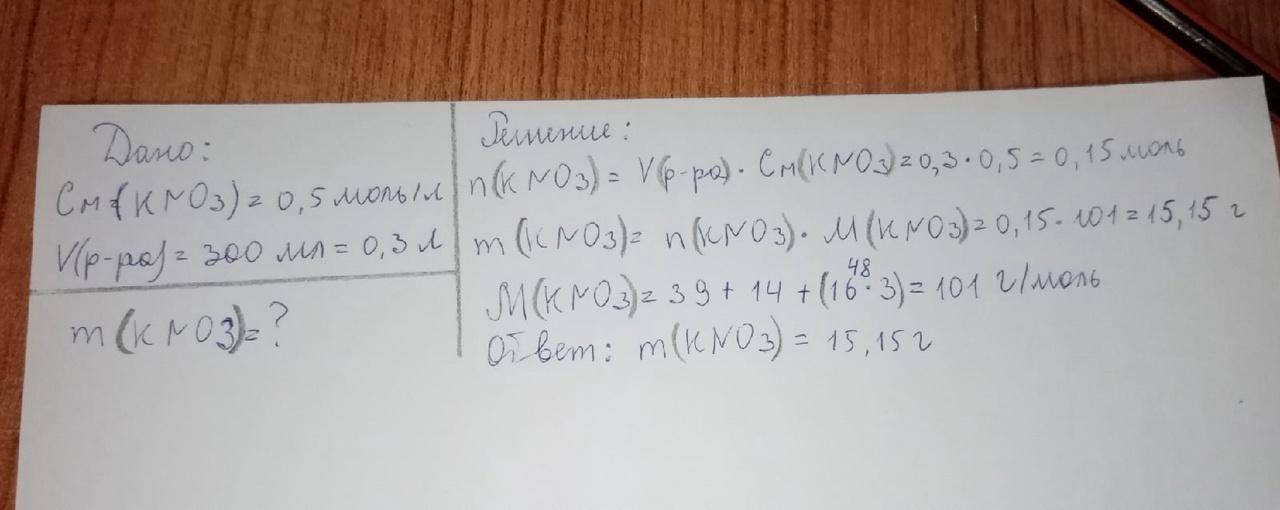 Дано:
Cм(KNO3) = 0,5 моль/л
V(р-ра) = 300 мл = 0,3 л
m(KNO3) = ?
Решение:
n(KNO3) = V(р-ра) · Cм(KNO3) = 0,3 · 0,5 = 0,15 моль
m(KNO3) = n(KNO3) · M(KNO3) = 0,15 · 101 = 15,15 г
48
M(KNO3) = 39 + 14 + (16 · 3) = 101 г/моль
Ответ: m(KNO3) = 15,15 г